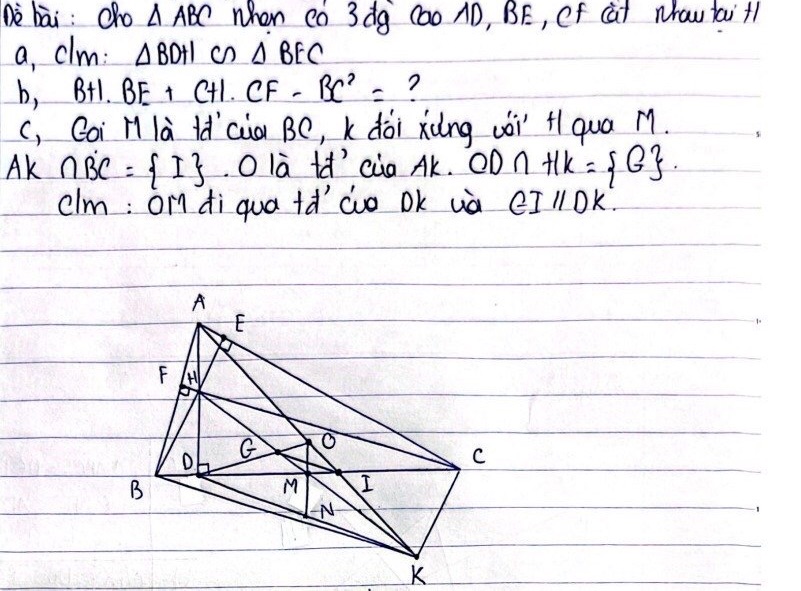 Đề bài : Cho Δ ABC nhọn có 3 đg cao AD, BE, CF cắt nhau tại H
a, C/m: ΔBDH ∽ Δ BEC
b, BH. BE + CH. CF - BC² = ?
c, Gọi M là tđ' của BC, K đối xứng với H qua M.
AK ∩ BC = { I } . O là tđ' của AK. OD ∩ HK = {G}.
C/m : OM đi qua tđ' của DK và GI // DK.
A
E
F
H
O
G
C
D
B
M
I
N
K